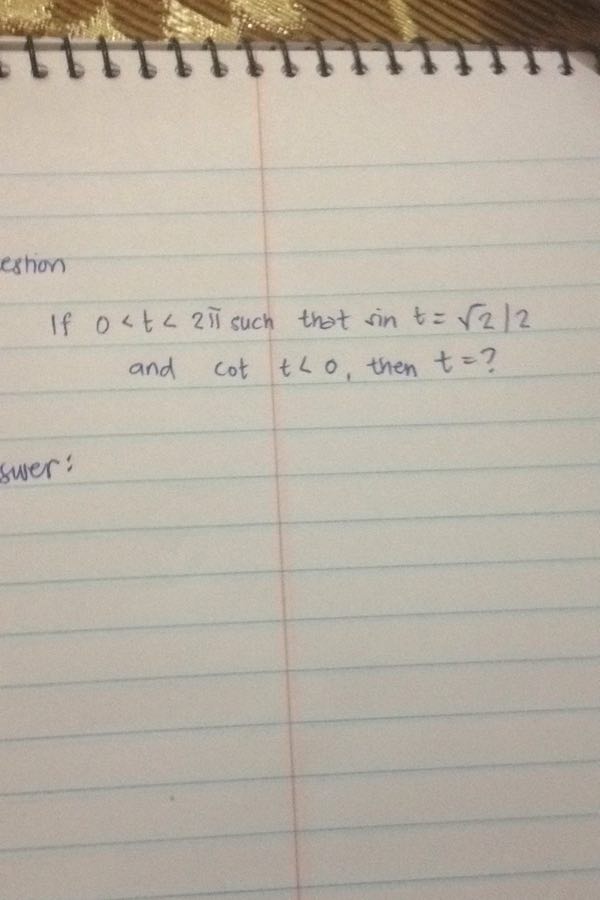 estion
If 0 < t < 2π such that sin t = √2/2
and cot t < 0, then t = ?
swer: